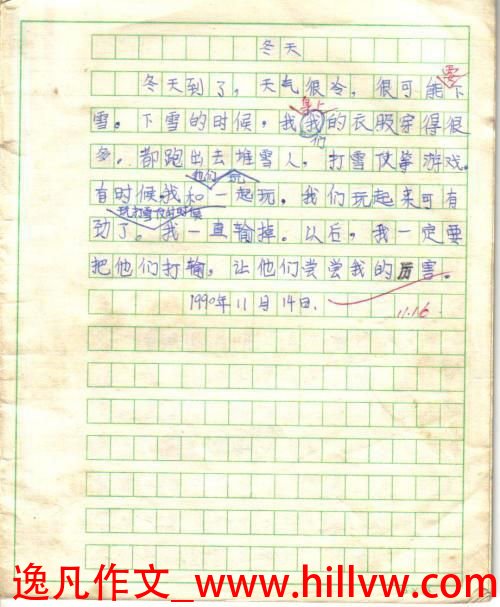 冬天
要
冬天到了，天气很冷，很可能下
身上
雪。下雪的时候，我我的衣服穿得很
们
多。都跑出去堆雪人，打雪仗等游戏。
他们 玩
有时候我和一起玩。我们玩起来可有
玩打雪仗的时候
劲了。我一直输掉。以后，我一定要
把他们打输，让他们尝尝我的厉害。
1990年11月14日.
11.16
逸凡作文_www.hillvw.com